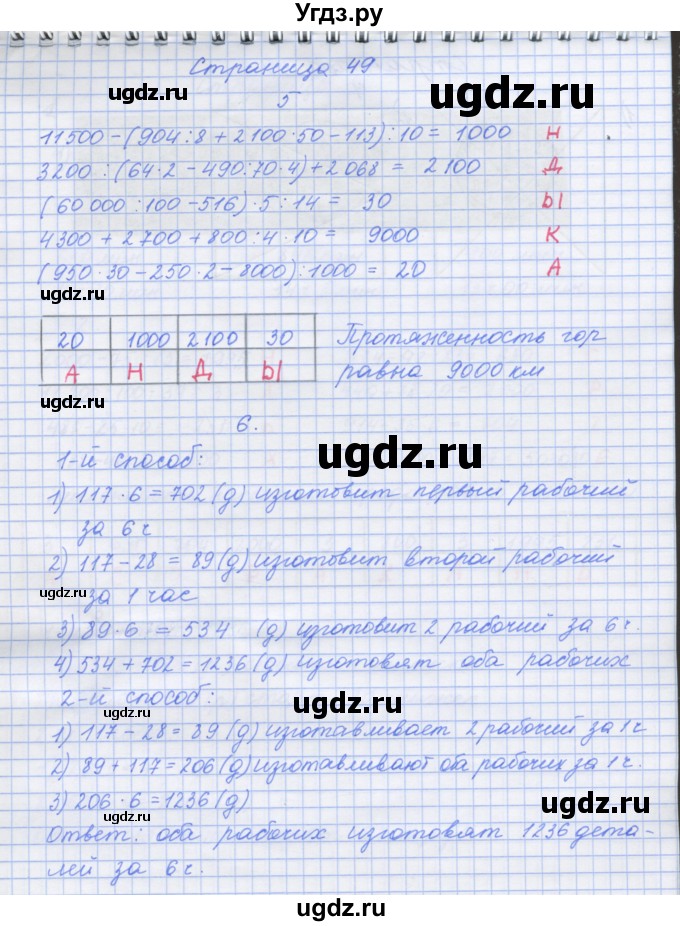 Угдз.ру
Страница 49
5
11500-(904:8+2100·50-113):10= 1000 Н
3200:(64·2-490:70·4)+2068= 2100 Д
(60000:100-516)·5:14= 30 Ы
4300+2700+800:4·10= 9000 К
(950·30-250·2-8000):1000= 20 А
20 1000 2100 30
А Н Д Ы
Протяженность гор
равна 9000 км
6.
1-й способ:
1) 117·6=702(д) изготовит первый рабочий
за 6 ч
2) 117-28=89(д) изготовит второй рабочий
за 1 час
3) 89·6=534 (д) изготовит 2 рабочий за 6ч.
4) 534+702=1236(д) изготовят оба рабочих
2-й способ:
1) 117-28=89(д) изготавливает 2 рабочий за 1ч
2) 89+117=206(д) изготавливают оба рабочих за 1ч.
3) 206·6=1236(д)
Ответ: оба рабочих изготовят 1236 дета-
лей за 6ч.
ugdz.ru
ugdz.ru
ugdz.ru
ugdz.ru
ugdz.ru
ugdz.ru
ugdz.ru
ugdz.ru
ugdz.ru
ugdz.ru
ugdz.ru
ugdz.ru
ugdz.ru
ugdz.ru